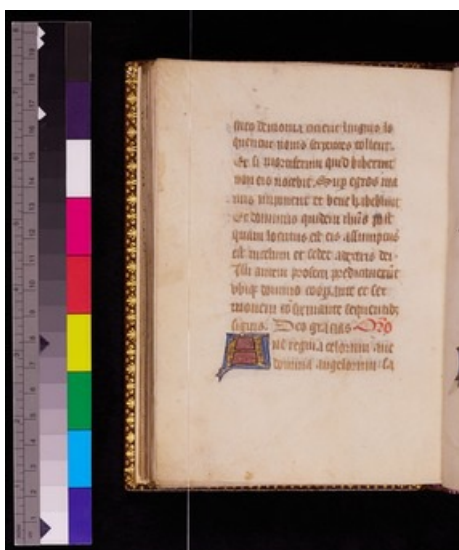 meo demonia eicient linguis lo
quentur nouis serpentes tollent.
Et si mortiferum quid biberint
non eis nocebit. Sup egros ma
nus imponent et bene habebunt
Et dominus quidem ihūs post
quam locutus est eis assumptus
est in celum et sedet adextris dei
Illi autem profecti predicauerūt
vbiqȝ domino coopante et ser
monem confirmante sequentibȝ
signis. Deo gracias Orō
Aue regina celorum aue
domina angelorum sa